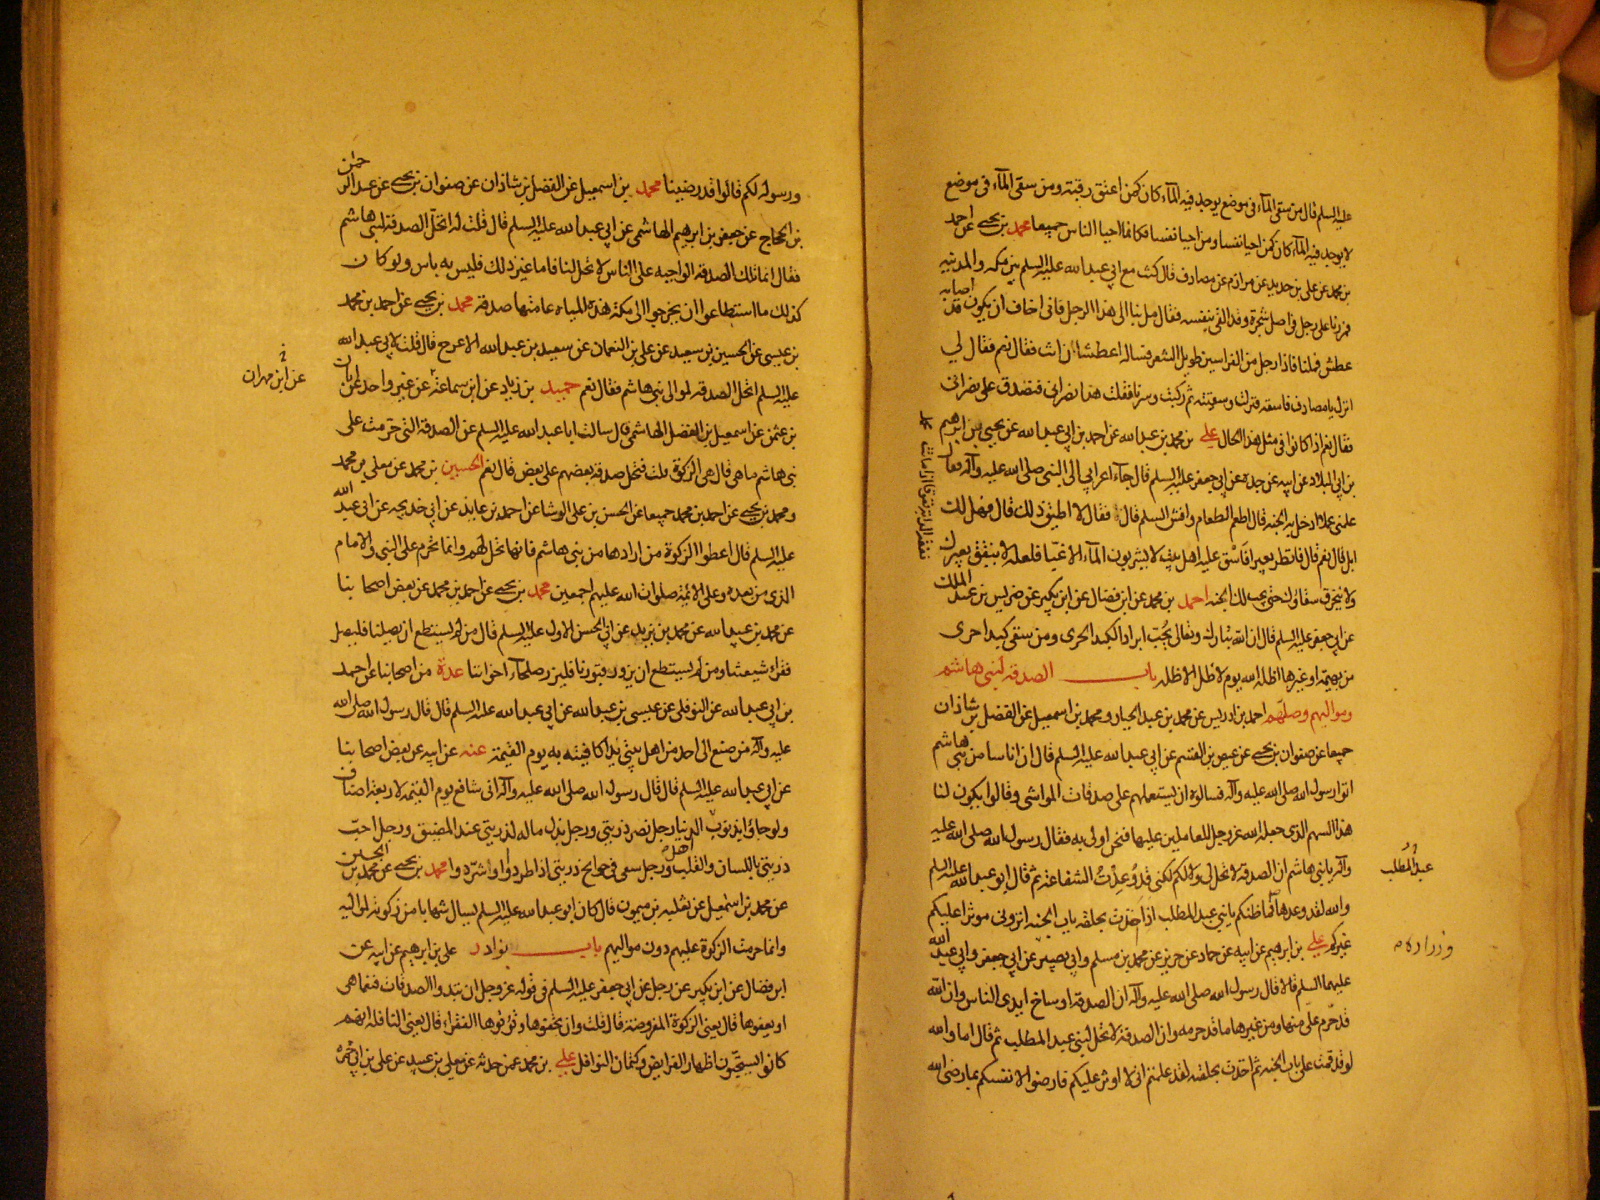 عليه السلم قال من سقى الماء فى موضع يوجد فيه الماء كان كمن اعتق رقبة ومن سقى الماء فى موضع
لا يوجد فيه الماء كان كمن احيا نفسا ومن احيا نفسا فكانما احيا الناس جميعا محمد بن يحيى عن احمد
بن محمد عن على بن حديد عن مرازم عن مصادف قال كنت مع ابي عبد الله عليه السلم بين مكة والمدينة
فمررنا على رجل فى اصل شجرة وقد القى بنفسه فقال مل بنا الى هذا الرجل فانى اخاف ان يكون قد اصابه
عطش فملنا فاذا رجل من الفراسين طويل الشعر فساله اعطشان انت فقال نعم فقال لي
انزل يا مصادف فاسقه فنزلت وسقيته ثم ركبت وسرنا فقلت هذا نصرانى فتتصدق على نصرانى
فقال نعم اذا كانوا فى مثل هذا الحال على بن محمد بن عبد الله عن احمد بن ابي عبد الله عن يحيى بن ابرهيم
بن ابي البلاد عن ابيه عن جده عن ابي جعفر عليه السلم قال جاء اعرابي الى النبي صلى الله عليه وآله فقال
علمنى عملا ادخل به الجنة قال اطعم الطعام وافش السلم قال فقال لا اطيق ذلك قال فهل لك
ابل قال نعم قال فانظر بعيرا فاسق عليه اهل بيت لا يشربون الماء الا غبا فلعله لا ينفق بعيرك
ولا ينخرق سقاؤك حتى يجب لك الجنة احمد بن محمد عن ابن فضال عن ابن بكير عن ضريس بن عبد الملك
عن ابي جعفر عليه السلم قال ان الله تبارك وتعالى يحب ابراد الكبد الحرى ومن سقى كبدا حرى
من بهيمة او غيرها اظله الله يوم لا ظل الا ظله باب الصدقة لبنى هاشم
ومواليهم وصلتهم احمد بن ادريس عن محمد بن عبد الجبار ومحمد بن اسمعيل عن الفضل بن شاذان
جميعا عن صفوان بن يحيى عن عيص بن القسم عن ابي عبد الله عليه السلم قال ان اناسا من بنى هاشم
اتوا رسول الله صلى الله عليه وآله فسالوه ان يستعملهم على صدقات المواشى وقالوا يكون لنا
هذا السهم الذى جعله الله عز وجل للعاملين عليها فنحن اولى به فقال رسول الله صلى الله عليه
وآله يا بنى هاشم ان الصدقة لا تحل لى ولا لكم لكنى قد وعدت الشفاعة ثم قال ابو عبد الله عليه السلم
عبد المطلب
والله لقد وعدها فما ظنكم يا بنى عبد المطلب اذا اخذت بحلقة باب الجنة اترونى موثرا عليكم
غيركم على بن ابرهيم عن ابيه عن حماد عن حريز عن محمد بن مسلم وابي بصير عن ابي جعفر وابي عبد الله
وزراره
عليهما السلم قالا قال رسول الله صلى الله عليه وآله ان الصدقة اوساخ ايدى الناس وان الله
قد حرم على منها ومن غيرها ما قد حرمه وان الصدقة لا تحل لبنى عبد المطلب ثم قال اما والله
لو قد قمت على باب الجنة ثم اخذت بحلقته لقد علمتم انى لا اوثر عليكم فارضوا لانفسكم بما رضى الله
ورسوله لكم قالوا قد رضينا محمد بن اسمعيل عن الفضل بن شاذان عن صفوان بن يحيى عن عبد الرحمن
بن الحجاج عن جعفر بن ابرهيم الهاشمى عن ابي عبد الله عليه السلم قال قلت له اتحل الصدقة لبنى هاشم
فقال انما تلك الصدقة الواجبة على الناس لا تحل لنا فاما غير ذلك فليس به باس ولو كان
كذلك ما استطاعوا ان يخرجوا الى مكة هذه المياه عامتها صدقة محمد بن يحيى عن احمد بن محمد
بن عيسى عن الحسين بن سعيد عن على بن النعمان عن سعيد بن عبد الله الاعرج قال قلت لابي عبد الله
عليه السلم اتحل الصدقة لموالى بنى هاشم فقال نعم حميد بن زياد عن ابن سماعة عن غير واحد عن ابان
عن ابن مهران
بن عثمن عن اسمعيل بن الفضل الهاشمى قال سالت ابا عبد الله عليه السلم عن الصدقة التى حرمت على
بنى هاشم ما هى قال هى الزكوة قلت فتحل صدقة بعضهم على بعض قال نعم الحسين بن محمد عن معلى بن محمد
ومحمد بن يحيى عن احمد بن محمد جميعا عن الحسن بن على الوشا عن احمد بن عايذ عن ابي خديجه عن ابي عبد الله
عليه السلم قال اعطوا الزكوة من ارادها من بنى هاشم فانها تحل لهم وانما تحرم على النبي والامام
الذى من بعده وعلى الائمة صلوات الله عليهم اجمعين محمد بن يحيى عن احمد بن محمد عن بعض اصحابنا
عن محمد بن عبد الله عن محمد بن يزيد عن ابي الحسن الاول عليه السلم قال من لم يستطع ان يصلنا فليصل
فقراء شيعتنا ومن لم يستطع ان يزور قبورنا فليزر صلحاء اخواننا عدة من اصحابنا عن احمد
بن ابي عبد الله عن النوفلى عن عيسى بن عبد الله عن ابي عبد الله عليه السلم قال قال رسول الله صلى الله
عليه وآله من صنع الى احد من اهل بيتى يدا كافيته به يوم القيمة عنه عن ابيه عن بعض اصحابنا
عن ابي عبد الله عليه السلم قال قال رسول الله صلى الله عليه وآله انى شافع يوم القيمة لاربعة اصناف
ولو جاؤا بذنوب اهل الدنيا رجل نصر ذريتى ورجل بذل ماله لذريتى عند المضيق ورجل احب
ذريتى باللسان والقلب ورجل سعى فى حوايج ذريتى اذا طردوا او شردوا محمد بن يحيى عن محمد بن الحسين
عن محمد بن اسمعيل عن ثعلبه بن ميمون قال كان ابو عبد الله عليه السلم يسال شهابا من زكوته لمواليه
وانما حرمت الزكوة عليهم دون مواليهم باب نوادر على بن ابرهيم عن ابيه عن
ابن فضال عن ابن بكير عن رجل عن ابي جعفر عليه السلم فى قوله عز وجل ان تبدوا الصدقات فنعما هى
قال يعنى الزكوة المفروضة قال قلت وان تخفوها وتؤتوها الفقراء قال يعنى النافلة انهم
كانوا يستحبون اظهار الفرايض وكتمان النوافل على بن محمد عمن حدثه عن معلى بن عبيد عن على بن ابي حمزة